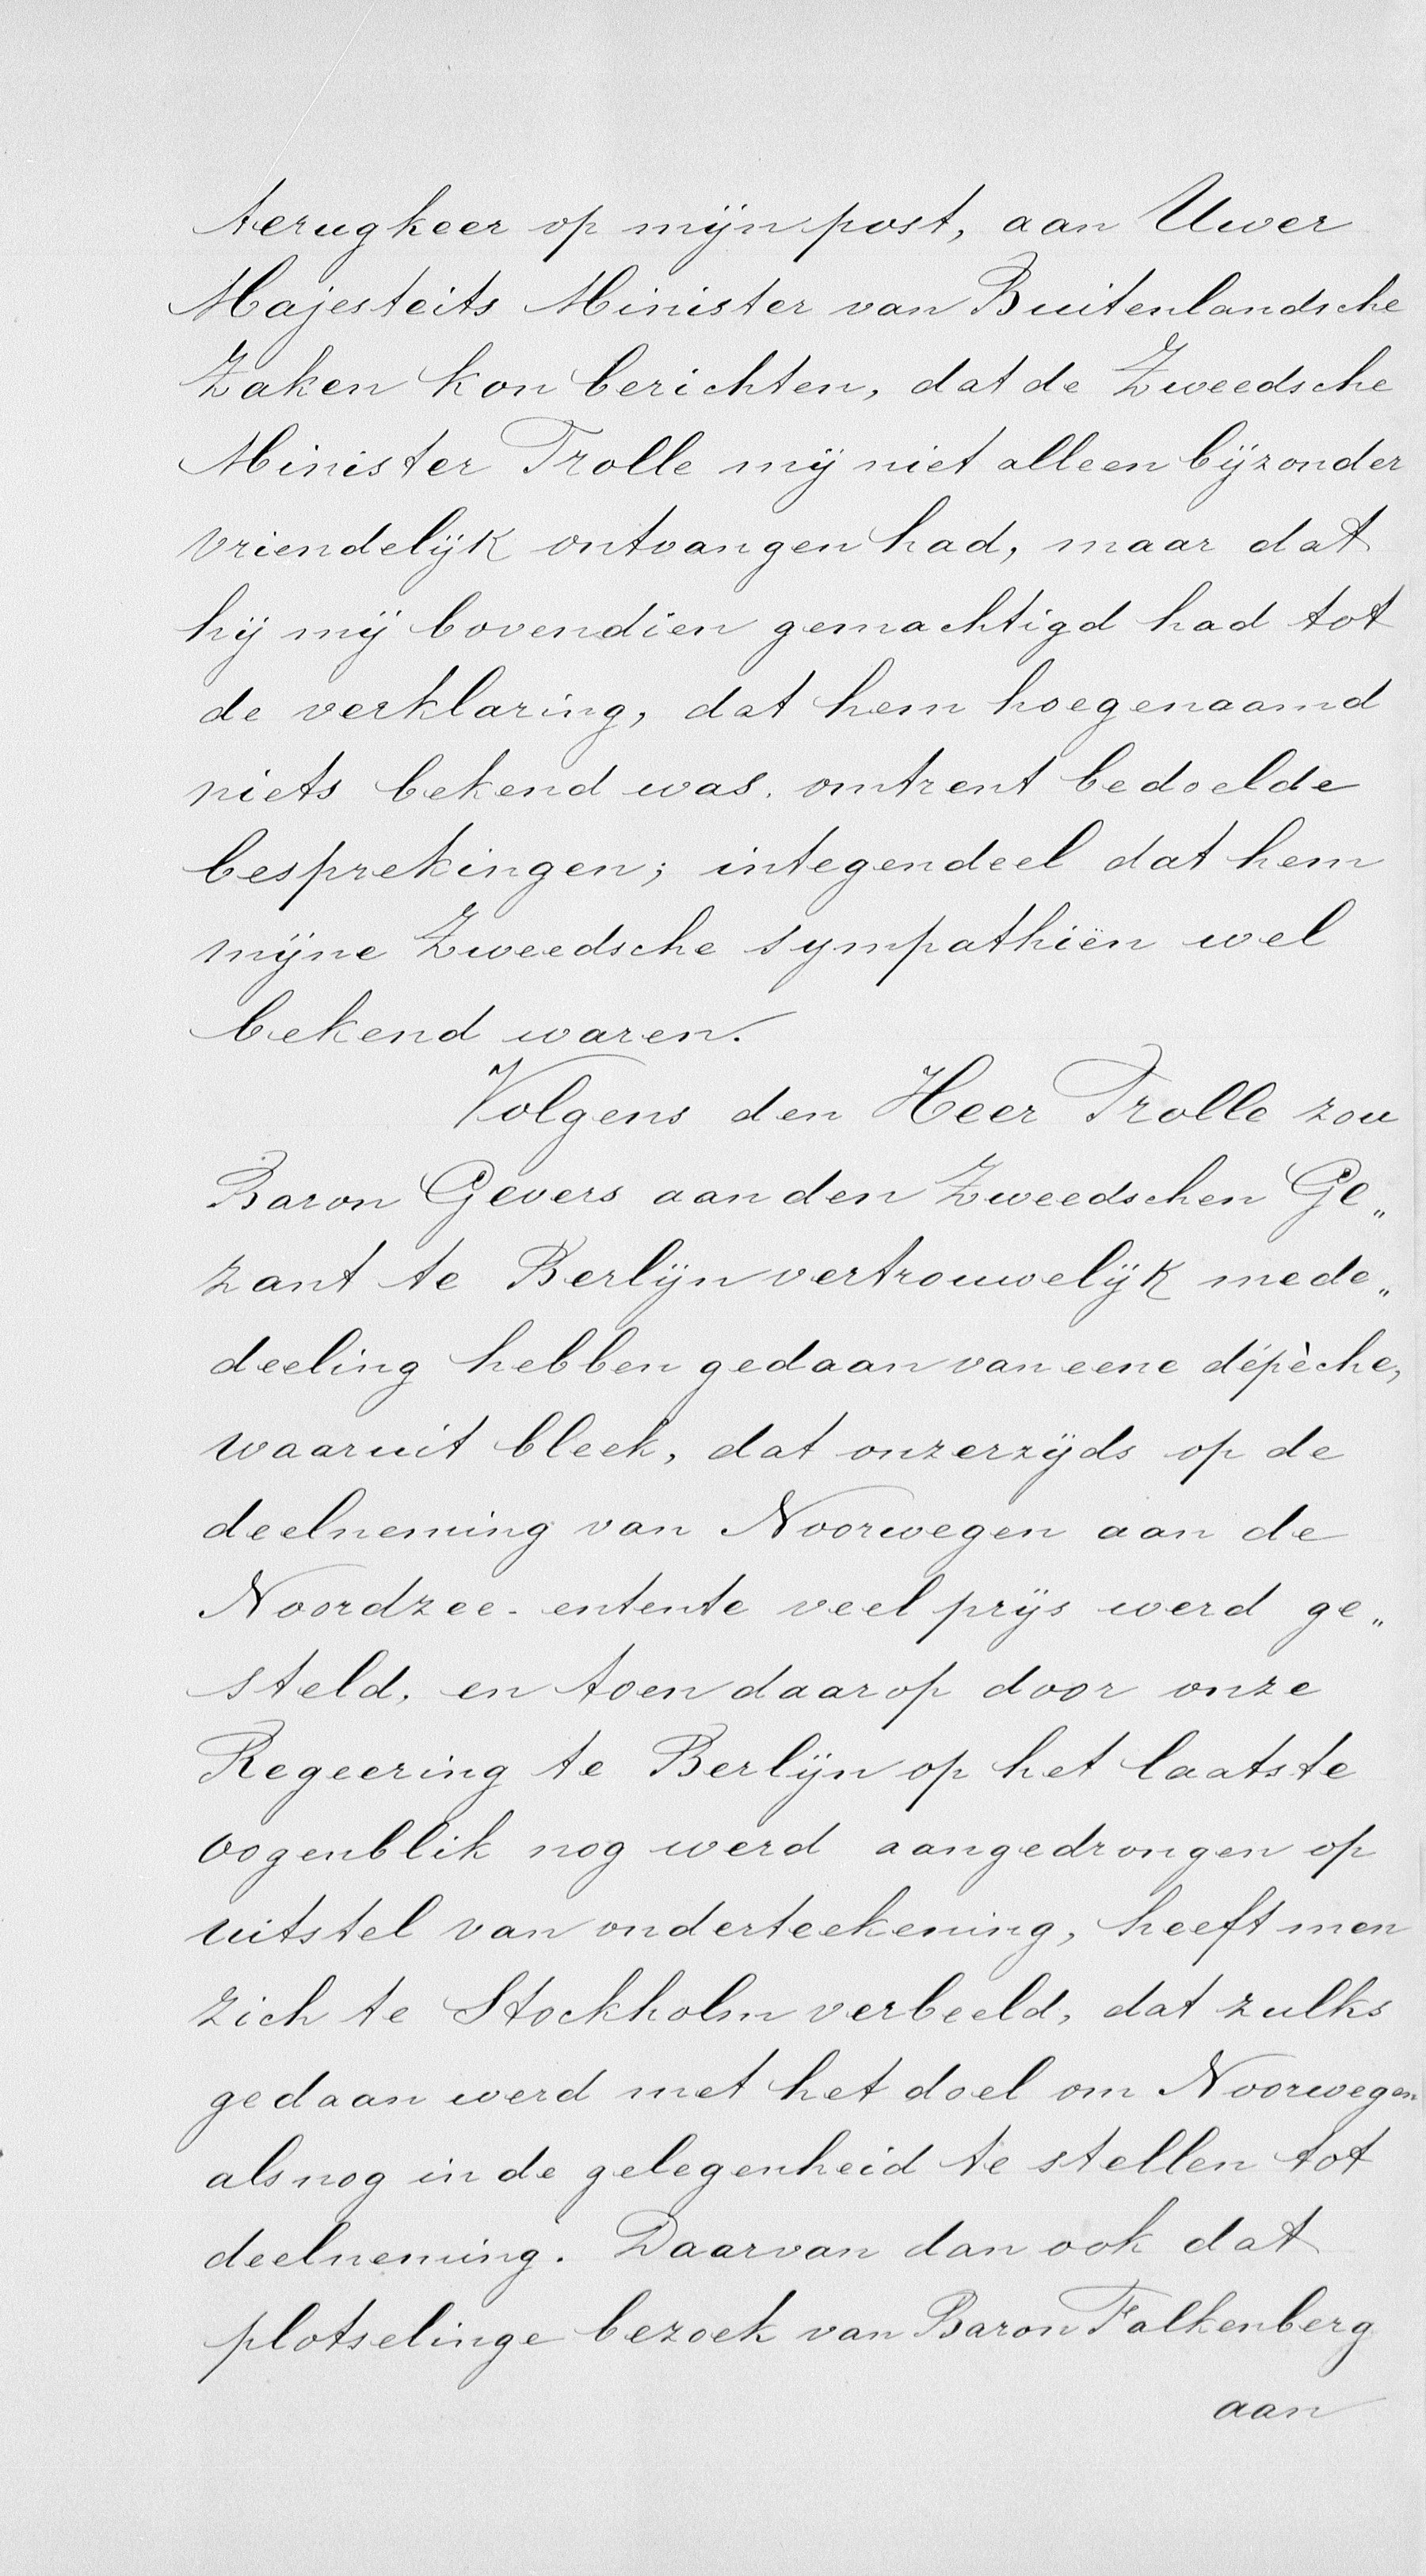 terugkeer op mijn post, aan Uwer
Majesteits Minister van Buitenlandsche
Zaken kon berichten, dat de Zweedsche
Minister Trolle mij niet alleen bijzonder
vriendelijk ontvangen had, maar dat
hij mij bovendien gemachtigd had tot
de verklaring, dat hem hoegenaamd
niets bekend was omtrent bedoelde
besprekingen; integendeel dat hem
mijne Zweedsche sympathiën wel
bekend waren.
Volgens den Heer Trolle zou
Baron Gevers aan den Zweedschen Ge„
zant te Berlijn vertrouwelijk mede„
deeling hebben gedaan van eene dépèche,
waaruit bleek, dat onzerzijds op de
deelneming van Noorwegen aan de
Noordzee-entente veel prijs werd ge„
steld, en toen daarop door onze
Regeering te Berlijn op het laatste
oogenblik nog werd aangedrongen op
uitstel van onderteekening, heeft men
zich te Stockholm verbeeld, dat zulks
gedaan werd met het doel om Noorwegen
alsnog in de gelegenheid te stellen tot
deelneming. Daarvan dan ook dat
plotselinge bezoek van Baron Falkenberg
aan